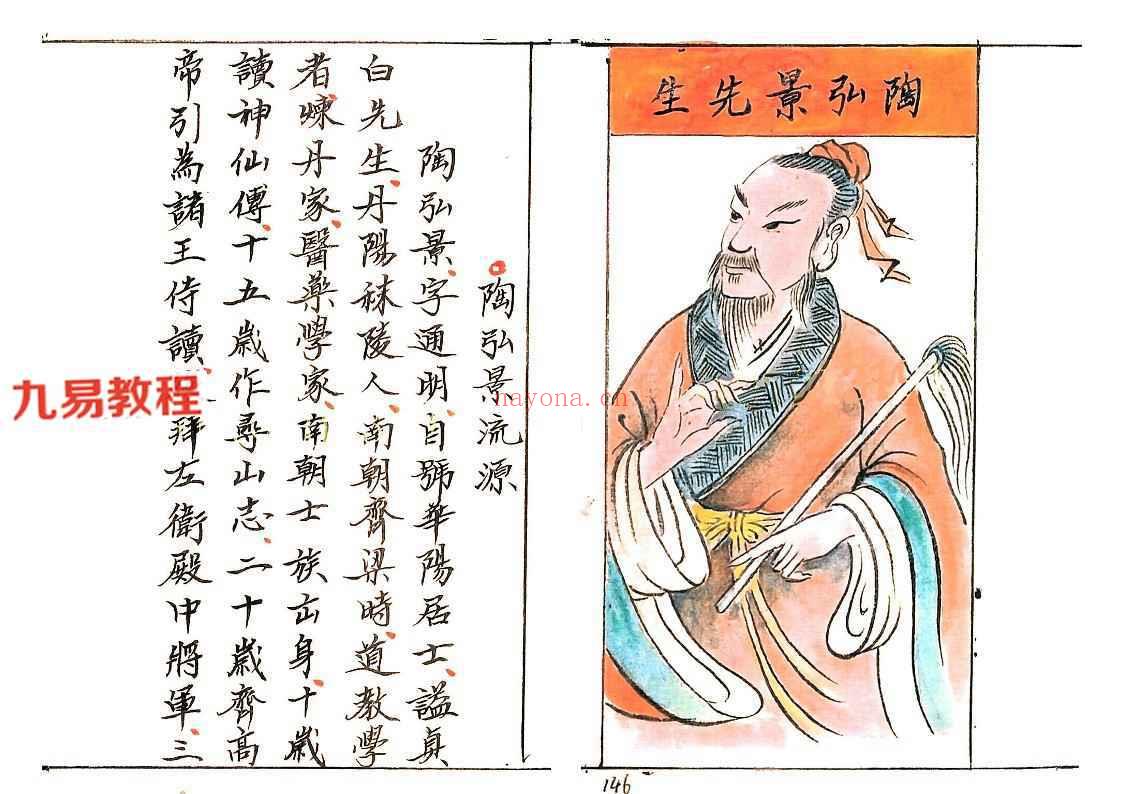 陶弘景先生
陶弘景流源
陶弘景、字通明、自號華陽居士、謚貞
白先生、丹陽秣陵人、南朝齊梁時、道教學
者、煉丹家、醫藥學家、南朝士族出身、十歲
讀神仙傳、十五歲作尋山志、二十歲齊高
帝引為諸王侍讀、拜左衛殿中將軍、三
146
九易教程
nayona.cn